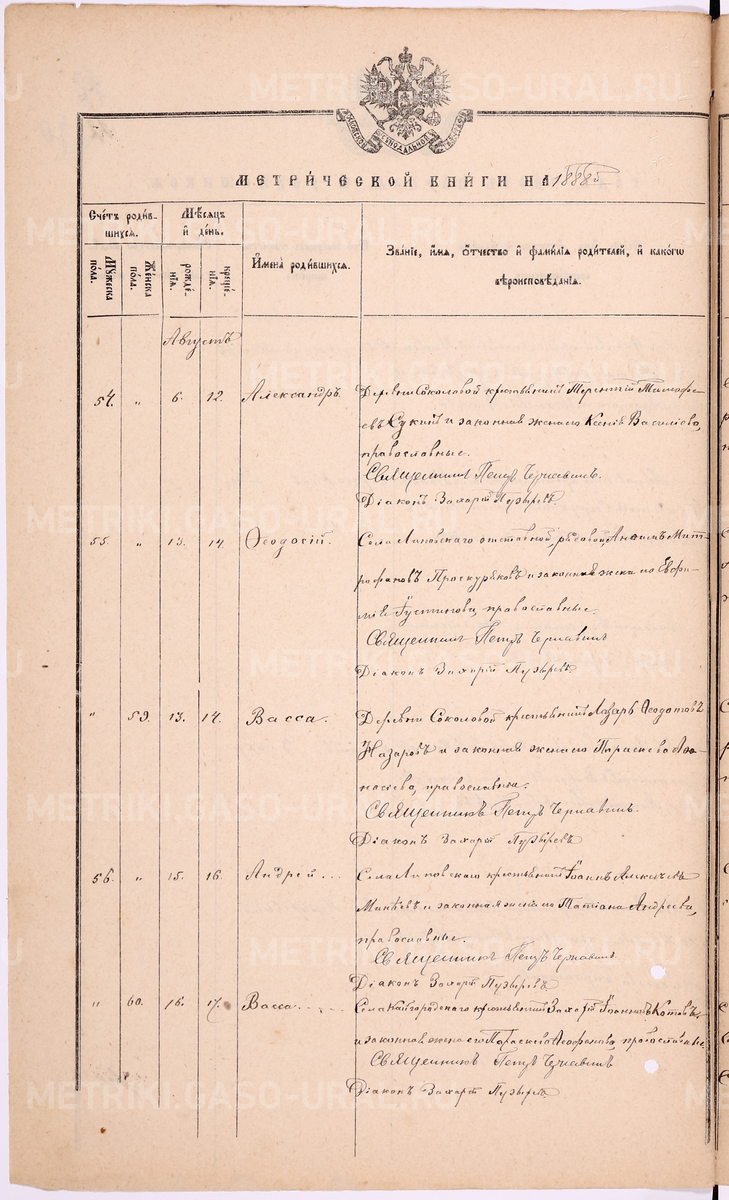 МЕТРИ́ЧЕСКОЙ КНИ́ГИ НА 1888й
Сче́тъ роди́в-
шихся.
Мѣ́сяцъ
и҆ де́нь.
И҆мена̀ роди́вшихся.
Зва́нїе, и҆́мя, ѻ҆́тчество и҆ фами́лїя роди́телей, и҆ како́гѡ
вѣроисповѣ́данїя.
Мꙋ́жеска
по́ла.
Же́нска
по́ла.
рожде́-
нїя.
креще́-
нїя.
Августъ
54. " 6. 12. Александръ. Деревни Соколовой крестьянинъ Терентій Тимофе-
евъ и законная жена его Ксенія Василіева,
православные.
Священникъ Петръ Чернавинъ.
Діаконъ Захарій Пузыревъ.
55. " 13. 14. Ѳеодосій. Села Липовскаго отставной рядовой Анфимъ Мит-
рофановъ Проскуряковъ и законная жена его Евфи-
мія Іустинова, православные.
Священникъ Петръ Чернавинъ
Діаконъ Захарій Пузыревъ.
" 59. 13. 14. Васса. Деревни Соколовой крестьянинъ Лазарь Ѳеодотовъ
Назаровъ и законная жена его Параскева Аѳа-
насіева, православные.
Священникъ Петръ Чернавинъ.
Діаконъ Захарій Пузыревъ
56. " 15. 16. Андрей... Села Липовскаго крестьянинъ Іоаннъ Алексѣевъ
Минѣевъ и законная жена его Татіана Андреева,
православные.
Священникъ Петръ Чернавинъ
Діаконъ Захарій Пузыревъ
" 60. 16. 17. Васса.... Села крестьянинъ Захарій Іоанновъ Котовъ
и законная жена его Параскева Ѳеофанова, православные
Священникъ Петръ Чернавинъ
Діаконъ Захарій Пузыревъ
METRIKI.GASO-URAL.RU